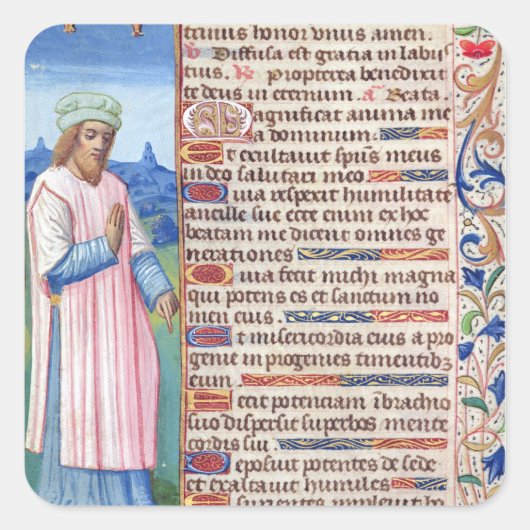 trinus honor vnius amen.
V Diffusa est gratia in labiis
tuis. R propterea benedixit
te deus in eternum. a Beata
Magnificat anima me
a dominum.
Et exultauit spūs meus
in deo salutari meo.
Quia respexit humilitatē
ancille sue ecce enim ex hoc
beatam me dicent omnes ge
nerationes
Quia fecit michi magna
qui potens es et sanctum no
men eius.
Et misericordia eius a pro
genie in progenies timentibz
eum.
Fecit potenciam ībrachio
suo dispersit superbos mente
cordis sui
Deposuit potentes de sede
et exaltauit humiles